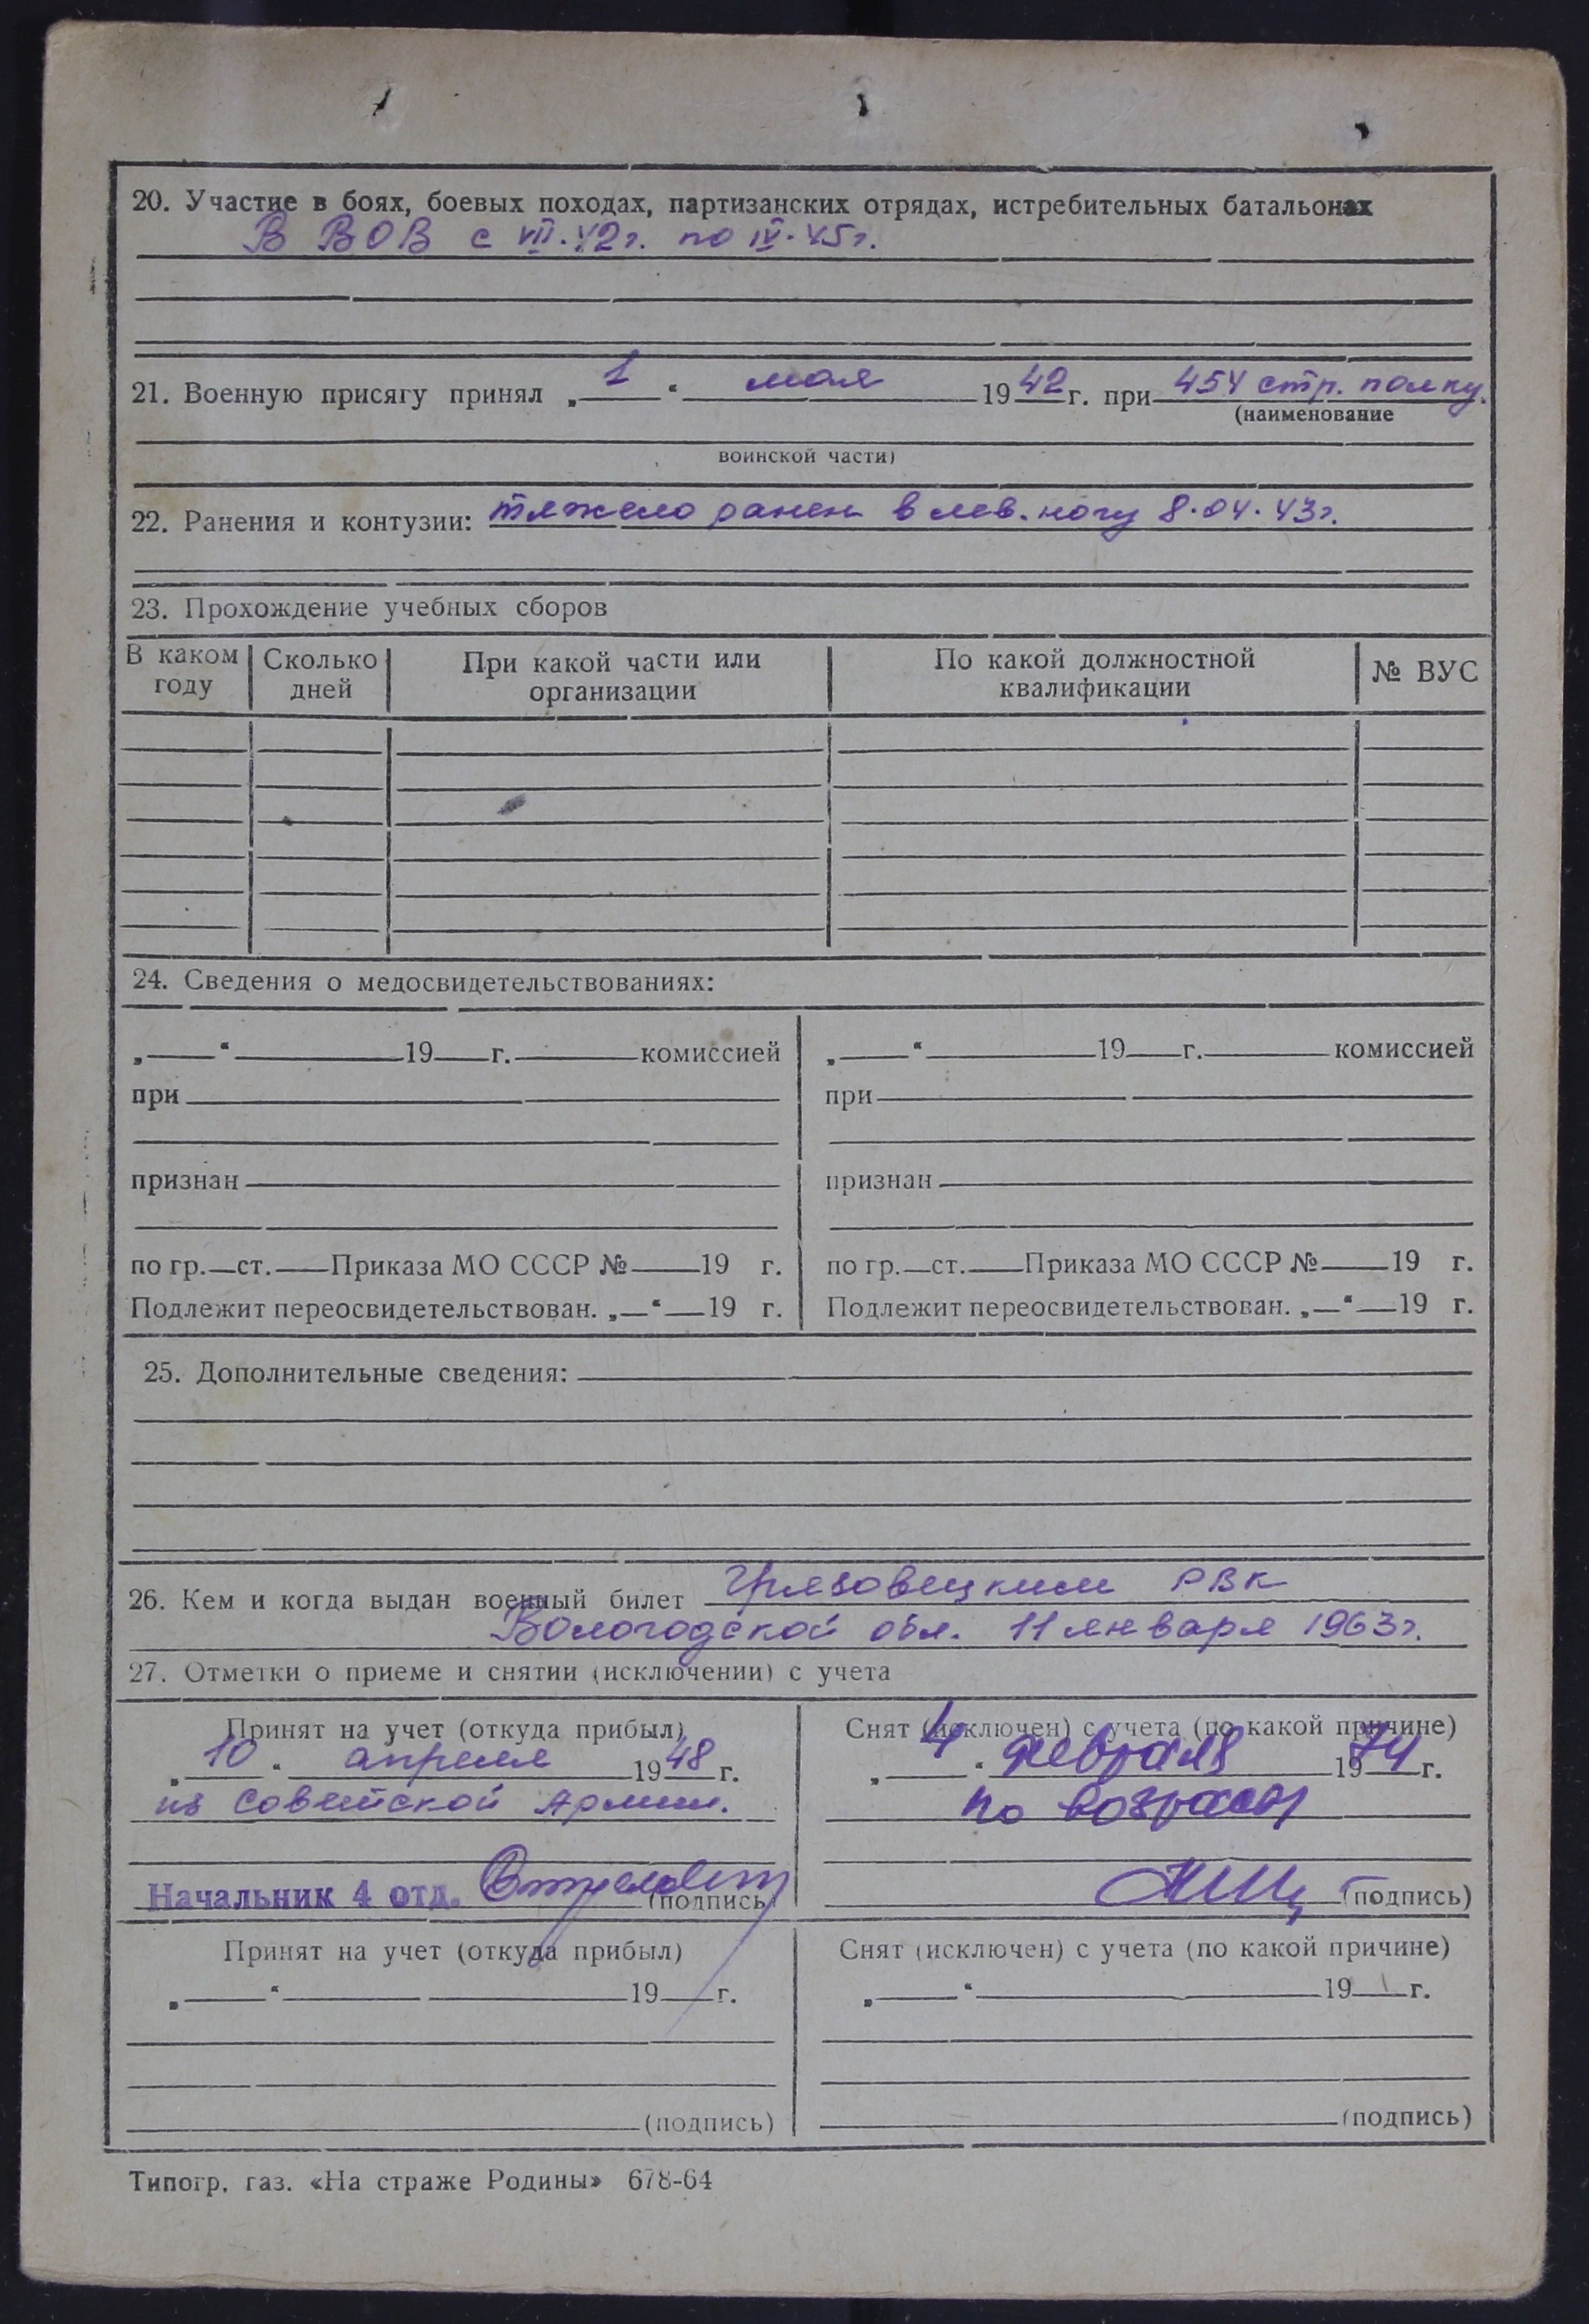 20. Участие в боях, боевых походах, партизанских отрядах, истребительных батальонах
В ВОВ с VII.42г. по IV.45г.
21. Военную присягу принял „1“ мая 1942г. при 454 стр. полку.
(наименование
воинской части)
22. Ранения и контузии: тяжело ранен в лев. ногу 8.04.43г.
23. Прохождение учебных сборов
В каком году | Сколько дней | При какой части или организации | По какой должностной квалификации | № ВУС
24. Сведения о медосвидетельствованиях:
„ “ 19 г. комиссией | „ “ 19 г. комиссией
при | при
признан | признан
по гр. ст. Приказа МО СССР № 19 г. | по гр. ст. Приказа МО СССР № 19 г.
Подлежит переосвидетельствован. „ “ 19 г. | Подлежит переосвидетельствован. „ “ 19 г.
25. Дополнительные сведения:
26. Кем и когда выдан военный билет Грязовецким РВК
Вологодской обл. 11 января 1963г.
27. Отметки о приеме и снятии (исключении) с учета
Принят на учет (откуда прибыл) | Снят (исключен) с учета (по какой причине)
„10“ апреля 1948 г. | „4“ февраля 1974 г.
из Советской Армии. | по возрасту
Начальник 4 отд. (подпись) | (подпись)
Принят на учет (откуда прибыл) | Снят (исключен) с учета (по какой причине)
„ “ 19 г. | „ “ 19 г.
(подпись) | (подпись)
Типогр. газ. «На страже Родины» 678-64